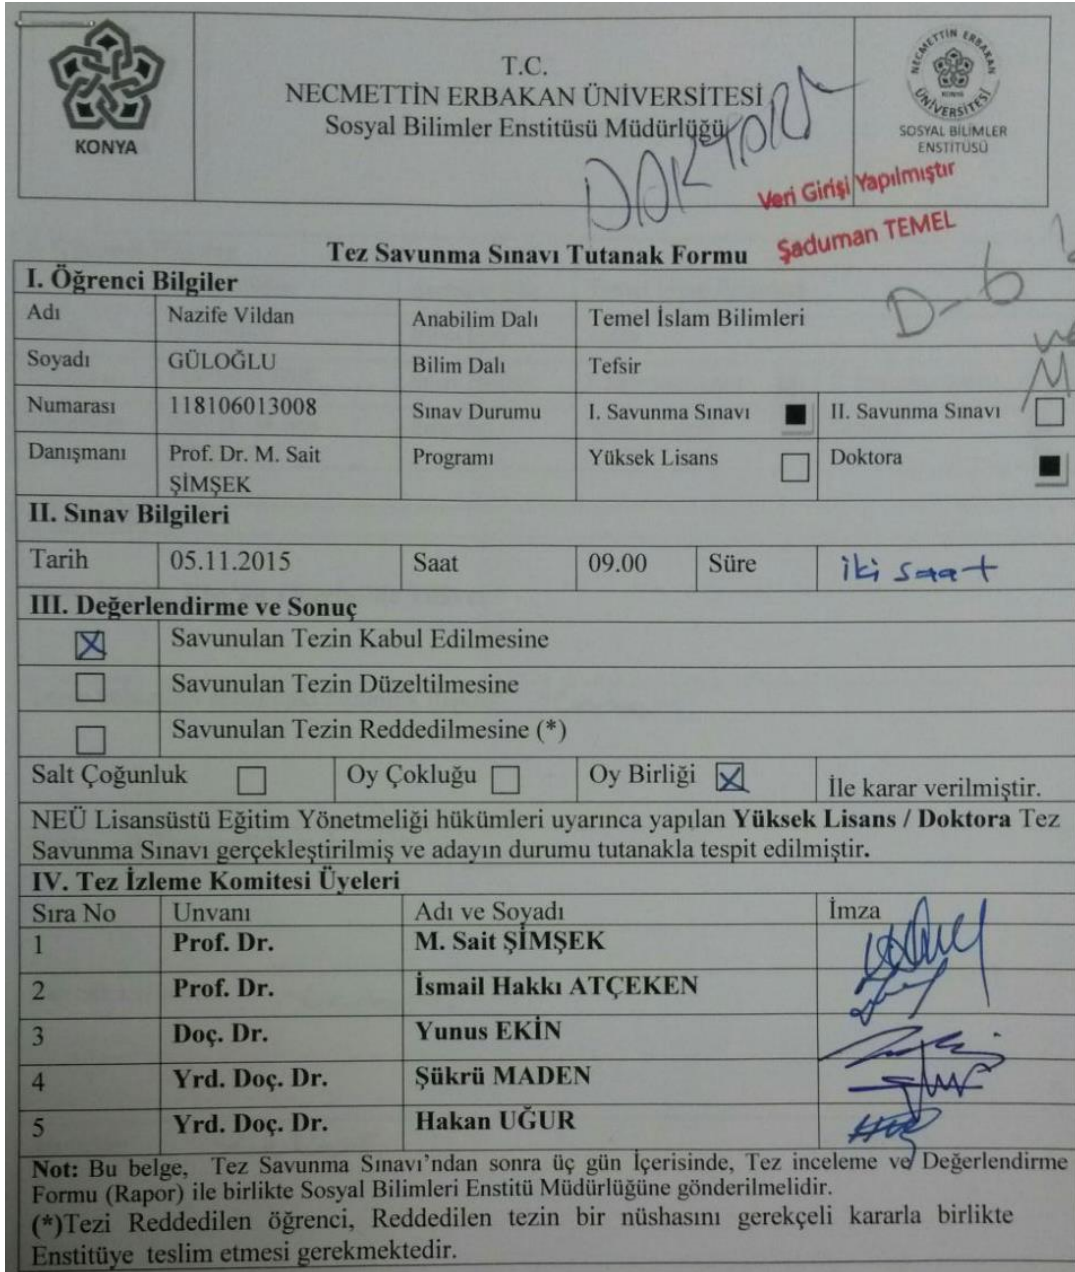 KONYA
T.C.
NECMETTİN ERBAKAN ÜNİVERSİTESİ
Sosyal Bilimler Enstitüsü Müdürlüğü
NECMETTİN ERBAKAN ÜNİVERSİTESİ
KONYA
SOSYAL BİLİMLER
ENSTİTÜSÜ
DOKTORA
Veri Girişi Yapılmıştır
Şaduman TEMEL
Tez Savunma Sınavı Tutanak Formu
D-6
I. Öğrenci Bilgiler
Adı Nazife Vildan Anabilim Dalı Temel İslam Bilimleri
Soyadı GÜLOĞLU Bilim Dalı Tefsir
Numarası 118106013008 Sınav Durumu I. Savunma Sınavı ■ II. Savunma Sınavı □
Danışmanı Prof. Dr. M. Sait Programı Yüksek Lisans □ Doktora ■
ŞİMŞEK
II. Sınav Bilgileri
Tarih 05.11.2015 Saat 09.00 Süre iki saat
III. Değerlendirme ve Sonuç
☒ Savunulan Tezin Kabul Edilmesine
□ Savunulan Tezin Düzeltilmesine
□ Savunulan Tezin Reddedilmesine (*)
Salt Çoğunluk □ Oy Çokluğu □ Oy Birliği ☒ İle karar verilmiştir.
NEÜ Lisansüstü Eğitim Yönetmeliği hükümleri uyarınca yapılan Yüksek Lisans / Doktora Tez
Savunma Sınavı gerçekleştirilmiş ve adayın durumu tutanakla tespit edilmiştir.
IV. Tez İzleme Komitesi Üyeleri
Sıra No Unvanı Adı ve Soyadı İmza
1 Prof. Dr. M. Sait ŞİMŞEK
2 Prof. Dr. İsmail Hakkı ATÇEKEN
3 Doç. Dr. Yunus EKİN
4 Yrd. Doç. Dr. Şükrü MADEN
5 Yrd. Doç. Dr. Hakan UĞUR
Not: Bu belge, Tez Savunma Sınavı'ndan sonra üç gün İçerisinde, Tez inceleme ve Değerlendirme
Formu (Rapor) ile birlikte Sosyal Bilimleri Enstitü Müdürlüğüne gönderilmelidir.
(*)Tezi Reddedilen öğrenci, Reddedilen tezin bir nüshasını gerekçeli kararla birlikte
Enstitüye teslim etmesi gerekmektedir.